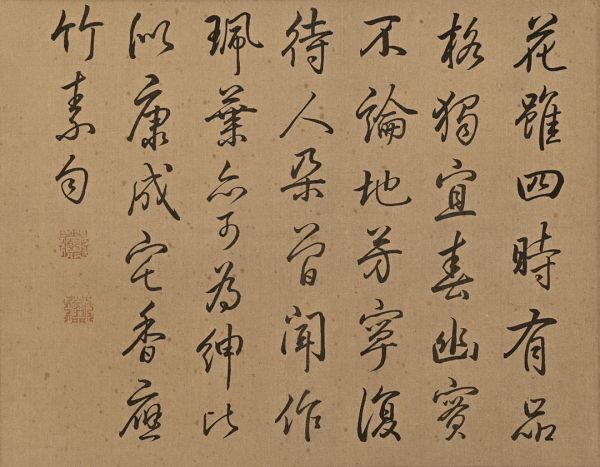 花雖四時有品
格獨宜春幽實
不論地芳寧復
待人朵曾聞作
珮葉亦可為紳比
似康成宅香應
竹素勻